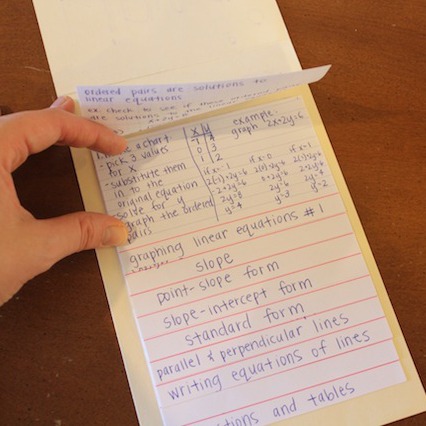 ordered pairs are solutions to
linear equations
ex. check to see if these ordered
are solutions to the linear
a chart
- pick 3 values
for x
- substitute them
in to the
original equation
- solve for y
graph the ordered
pairs
x y
-1 4
0 3
1 2
example:
graph 2x+2y=6
if x=-1
2(-1)+2y=6
-2+2y=6
2y=8
y=4
if x=0
2(0)+2y=6
0+2y=6
2y=6
y=3
2+2y=6
2y=4
y=2
graphing linear equations #1
slope
point-slope form
slope-intercept form
standard form
parallel & perpendicular lines
writing equations of lines
and tables